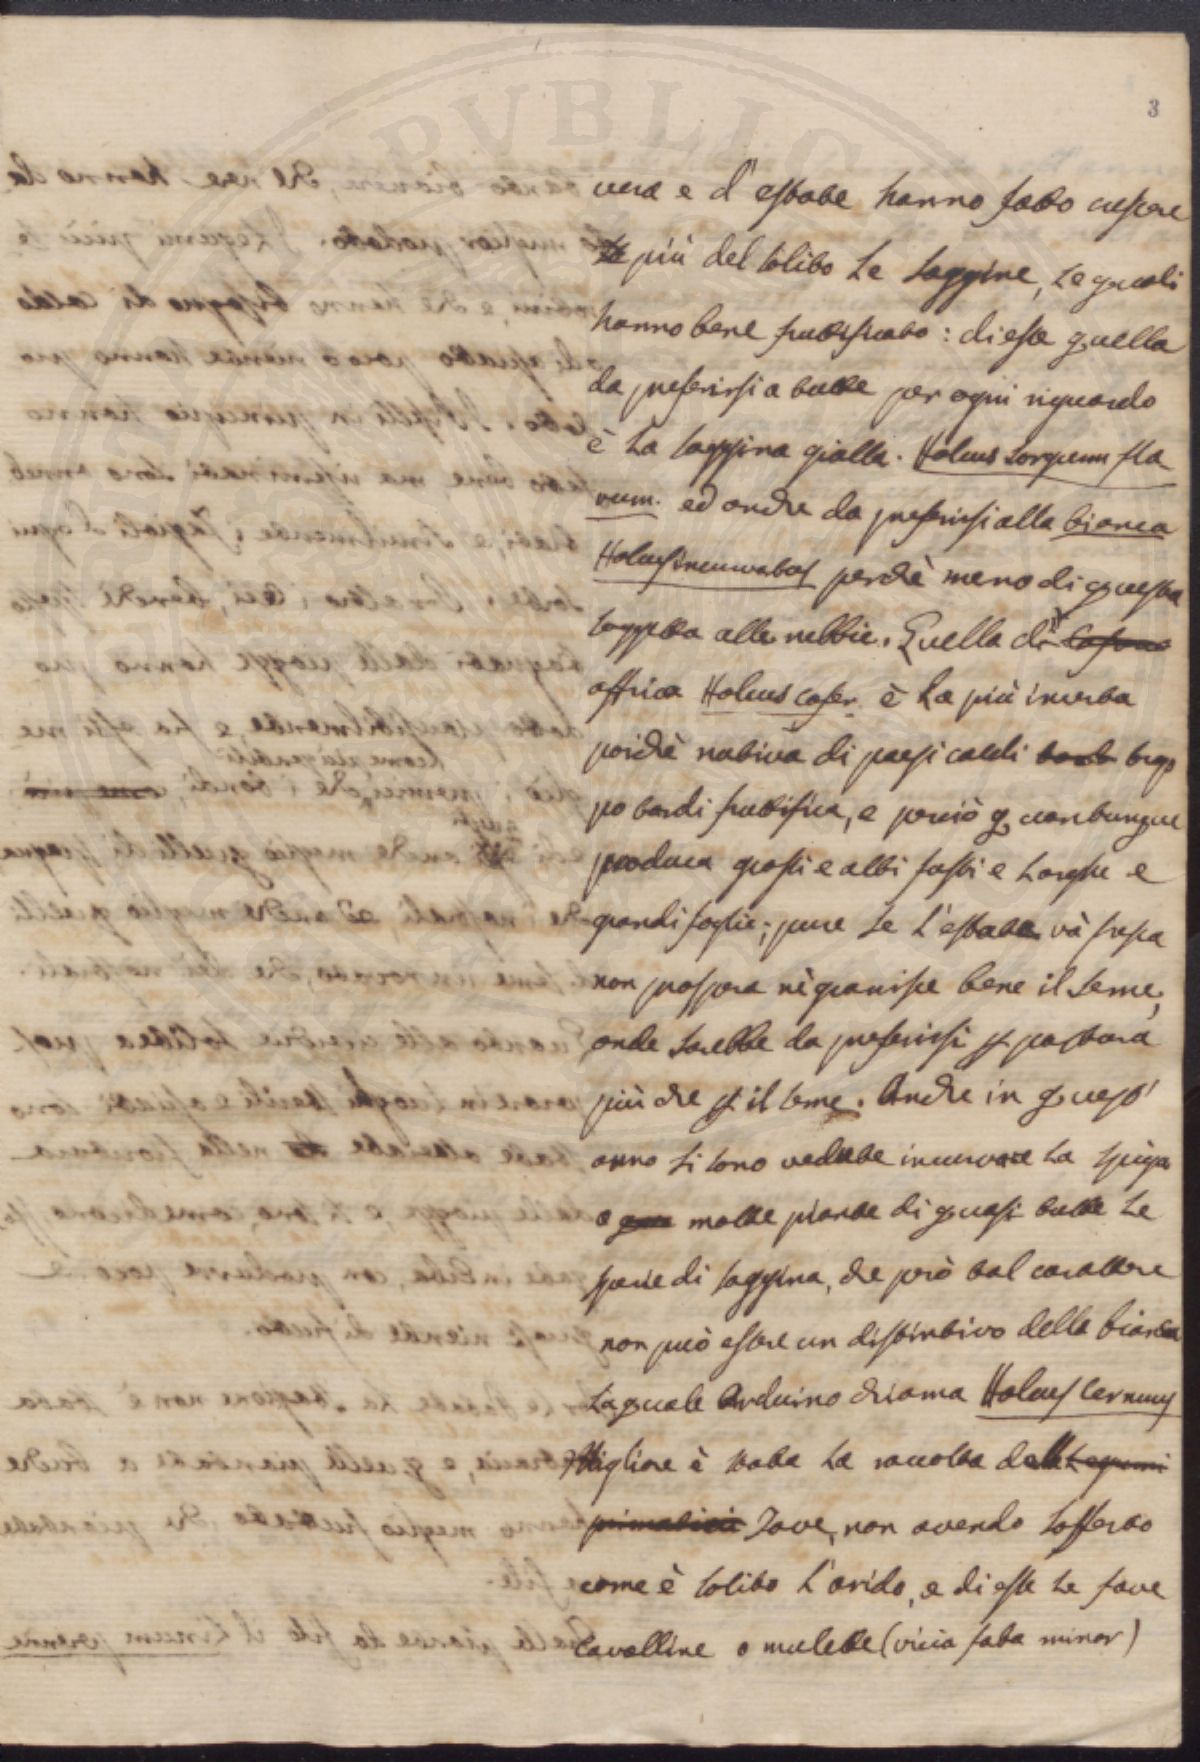 3
vera e d'estate hanno fatto crescere
più del solito le saggine, le quali
hanno bene fruttificato: di esse quella
da preferirsi a tutte per ogni riguardo
è la saggina gialla. Holcus sorgum fla
vum. ed anche da preferirsi alla bianca
Holcus incurvatus perchè meno di questa
soggetta alle nebbie. Quella di
affrica Holcus cafer. è la più incerta
poichè nativa di paesi caldi trop
po tardi fruttifica, e perciò quantunque
produca grossi e alti fusti e larghe e
grandi foglie; pure se l'estate và fresca
non prospera nè granisce bene il seme,
onde sarebbe da preferirsi p pastura
più che p il seme. Anche in quest'
anno si sono vedute incurvare la spiga
a molte piante di quasi tutte le
specie di saggina, che però tal carattere
non può essere un distintivo della bianca
la quale Arduino chiama Holcus Cernuus
Migliore è stata la raccolta delle Legumi
primaticci Fave, non avendo sofferto
come è solito l'arido, e di esse le fave
cavalline o mulette (vicia faba minor)